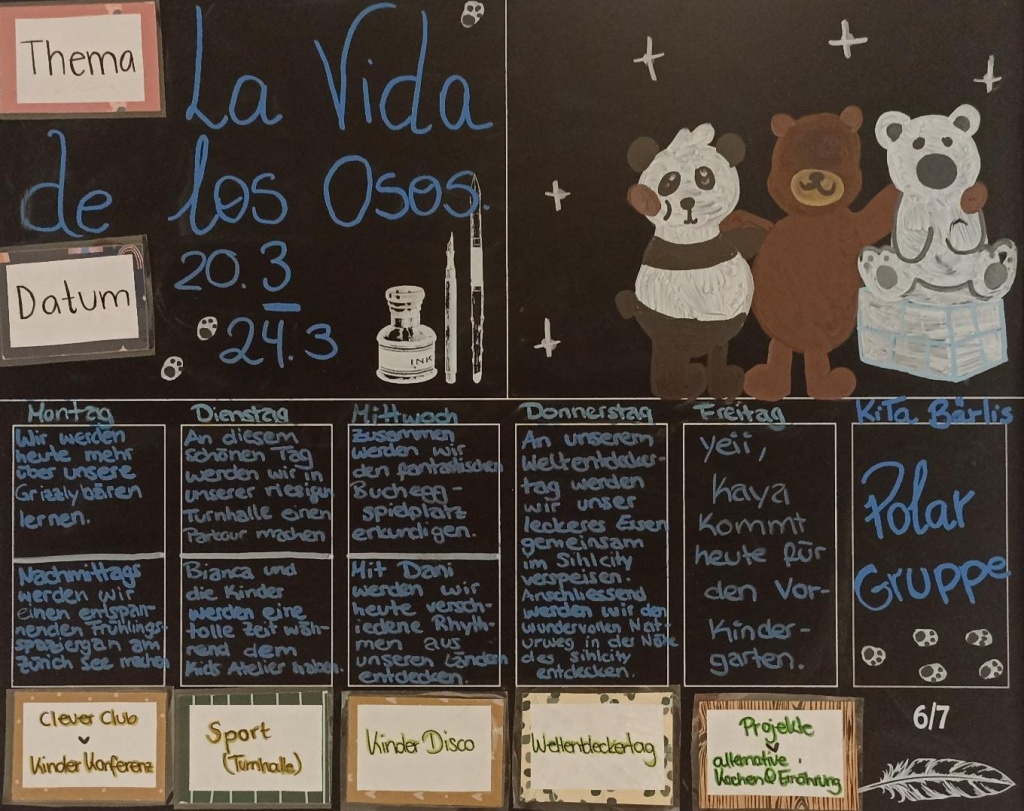 Thema
La Vida
de los Osos.
Datum
20.3
24.3
INK
Montag
Wir werden
heute mehr
über unsere
Grizzlybären
lernen.
Nachmittags
werden wir
einen entspan-
nenden Frühlings-
spaziergan am
Zürich See machen
Dienstag
An diesem
schönen Tag
werden wir in
unserer riesigen
Turnhalle einen
Parkour machen
Bianca und
die Kinder
werden eine
tolle Zeit wäh-
rend dem
Kids Atelier haben.
Mittwoch
Zusammen
werden wir
den fantastischen
Buchegg-
spielplatz
erkundigen.
Mit Dani
werden wir
heute versch-
iedene Rhyth-
men aus
unseren Ländern
entdecken.
Donnerstag
An unserem
Weltentdecker-
tag werden
wir unser
leckeres Essen
gemeinsam
im Sihlcity
verspeisen.
Anschliessend
werden wir den
wundervollen Nat-
urweg in der Nähe
des Sihlcity
entdecken.
Freitag
Yeii,
Kaya
Kommt
heute für
den Vor-
Kinder-
garten.
KiTa Bärlis
Polar
Gruppe
Clever Club
Kinder Konferenz
Sport
(Turnhalle)
Kinder Disco
Weltentdeckertag
Projekte
alternative
Kochen & Ernährung
6/7